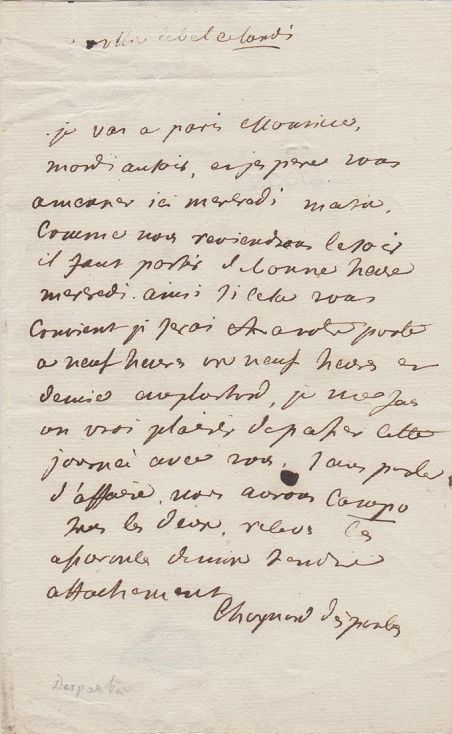 ce lundi
je vas a paris Monsieur,
mardi au soir, et jespere vous
amener ici mercredi matin.
Comme nous reviendrons le soir
il faut partir de bonne heure
mercredi. ainsi si cela vous
Convient je serai a votre porte
a neuf heures ou neuf heures et
demie au plus tard, je me fais
un vrai plaisir de passer cette
journee avec vous, sans parler
d'affaire, nous aurons Campo
tous les deux. recevés les
assurances de mon tendre
attachement